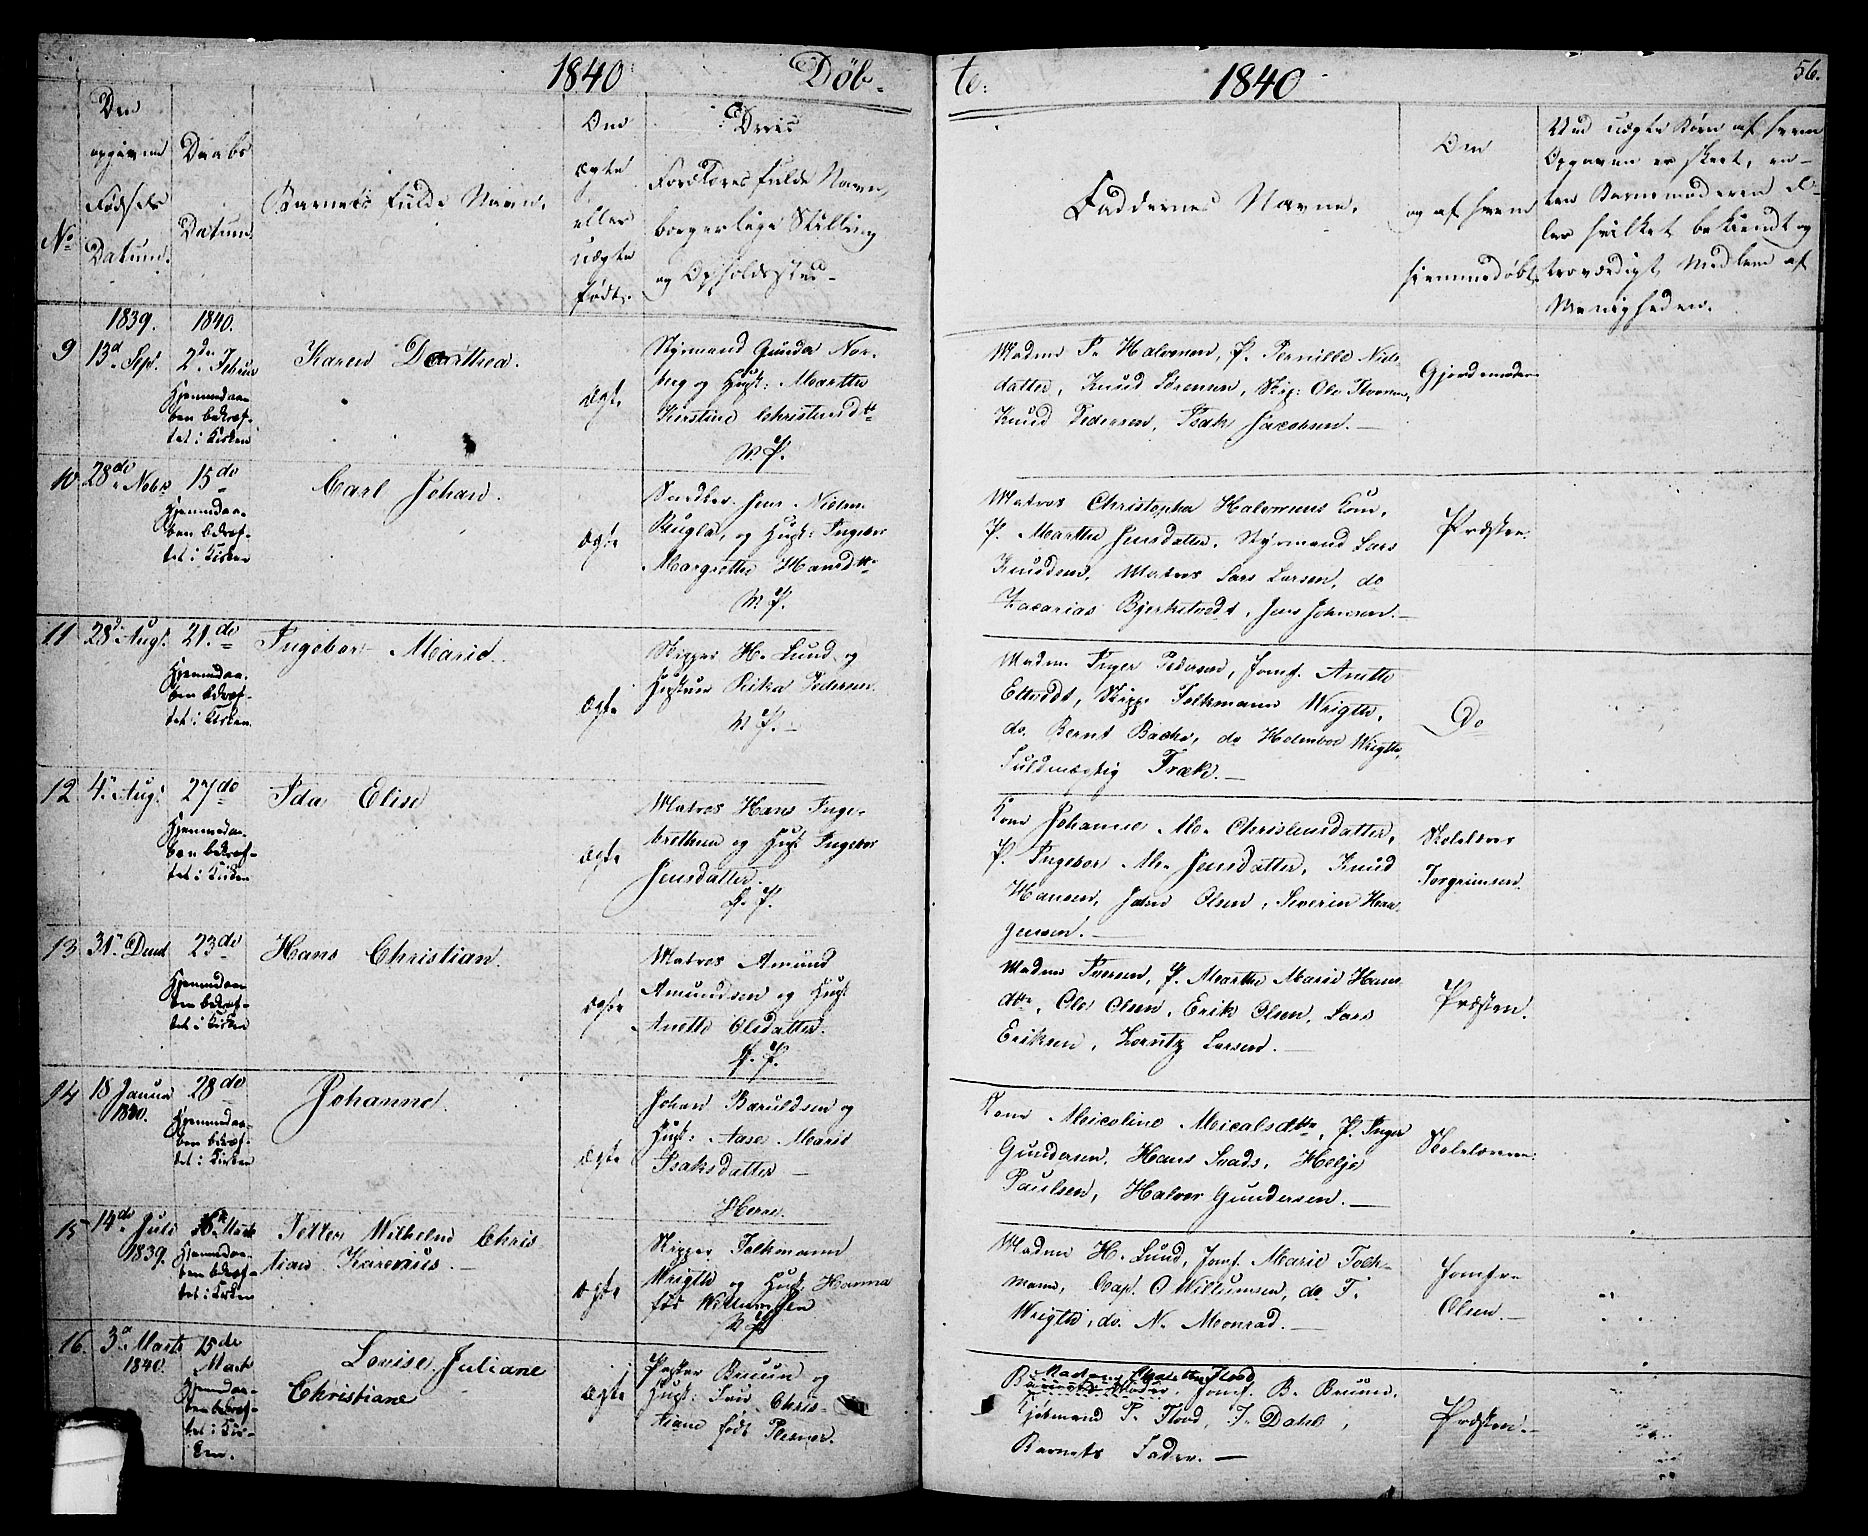 1840 Døb-
te: 1840 56.
No
Den
opgivne
Fødsels
Datum.
Daabs
Datum
Barnets fulde Navn.
Om
ægte
eller
uægte
født.
Deres
Forældres fulde Navn,
borgerlige Stilling
og Opholdssted
Faddernes Navne.
Om
og af hvem
hjemmedøbt
Ved uægte Børn af hvem
Opgaven er skeet, en-
ten Barnemoderen el-
ler hvilket bekiendt og
troværdigt Medlem af
Menigheden.
1839. 1840.
9 13de Sept. 2den Februar
Hjemmedaa-
ben bekræf-
tet i Kirken
Karen Dorthea.
Ægte
Styrmand Gunder Nor-
berg og Hust: Marthe
Kirstine Christensdtr
W. P.
Madme P. Halvorsen, P. Pernille Niels
datter, Knud Sørensen, Skip: Ole
Knud Pedersen, Isak Jacobsen.
Gjordemoder
10 28de Nobr 15de
Hjemmedaa-
ben bekræf-
tet i Kirken
Carl Johan.
Ægte
Snedker Jens Nielsen
og Hust: Ingebor
Margrethe Hansdtr
W. P.
Matros Christopher Halvorsens Kone,
P. Marthe Jensdatter, Styrmand Lars
Knudsen, Matros Lars Larsen, do
Zacarias Bjerketvedt, Jens Johnsen.
Præsten.
11 28de Augt. 21.de
Hjemmedaa-
ben bekræf-
tet i Kirken
Ingebor Marie.
Ægte
Skipper H. Lund og
Hustrue Rika Pedersen.
W. P.
Madme Inger Pedersen, Jomf. Anette
Eltvedt, Skipp. Folkmann Wrigth,
do. Bernt Bache, do Holmboe Wrigth,
Fuldmægtig Træke.
Do
12 4de Augt 27de
Hjemmedaa-
ben bekræf-
tet i Kirken
Ida Elise
Ægte
Matros Hans Inge-
brethsen og Hust Ingebor
Jensdatter.
L. P.
Kone Johanne Me. Christensdatter,
P. Ingebor Me. Jensdatter, Knud
Hansen, John Olsen, Severin Haa-
gensen.
Skolelærer
Torgrimsen.
13 31te Decbr 23de
Hjemmedaa-
ben bekræf-
tet i Kirken
Hans Christian.
Ægte
Matros Amund
Amundsen og Hust
Anette Olsdatter.
L. P.
Madme Iversen, P. Marthe Marie Hans
dttr, Ole Olsen, Erik Olsen, Lars
Eriksen, Loruitz Larsen.
Præsten.
14 18 Januar
1840. 28de
Hjemmedaa-
ben bekræf-
tet i Kirken
Johanne.
Ægte
Johan Baruldsen og
Hust: Aase Marie
Isaksdatter
Herre.
Kone Micoline Micalsdttr, P. Inger
Gundersen, Hans Svads, Helje
Paulsen, Halvor Gundersen.
Skolelæreren
15 14de Juli
1839. Marts
Hjemmedaa-
ben bekræf-
tet i Kirken
Petter Wilhelm Chris-
tian Karenius.
Ægte
Skipper Folkmann
Wrigth og Hust Hanna
fød Willumsen
W. P.
Madme H. Lund, Jomf. Marie Folk-
mann, Cap. O Willumsen, do. F.
Wrigth, do. N. Monrad.
Jomfr.
Olsen.
16. 3die Marts
1840. 15de
Marts
Hjemmedaa-
ben bekræf-
tet i Kir-
ken.
Louise Juliane
Christiane
Ægte
Pastor Bruun og
Hust: Chris-
tiane født Plesner.
Madme Flood
Barnets Moder, Jomf. B. Bruun,
Kjøbmand P. Flood, J. Dahl,
Barnets Fader.
Præsten.